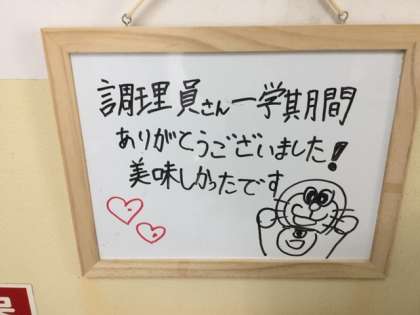 調理員さん一学期間
ありがとうございました!
美味しかったです